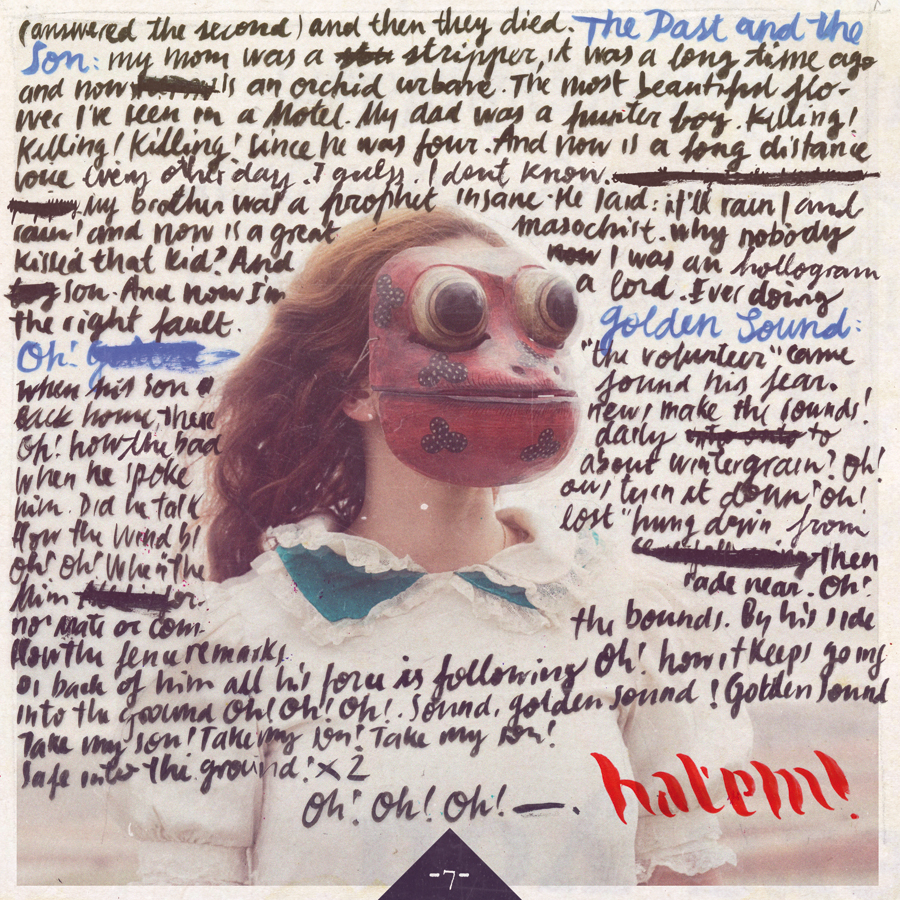 (answered the second) and then they died. The Past and the
Son: my mom was a stripper, it was a long time ago
and now is an orchid urbane. The most beautiful flo-
wer I've seen in a Motel. My dad was a hunter boy. Killing!
Killing! Killing! Since he was four. And now is a long distance
voice every other day. I guess. I dont know.
My brother was a prophet insane. He said: it'll rain! and
rain! and now is a great masochist. Why nobody
kissed that kid? And now I was an hollogram
son. And now I'm a lord. Ever doing
the right fault. Golden Sound:
Oh! "the volunteer" came
when his son found his fear.
Back home, there news make the sounds!
Oh! how the bad daily to
when he spoke about wintergrain? Oh!
him. Did he talk turn it down! Oh!
How the wind lost "hung down from
Oh! Oh! When the then
Him near. Oh!
no mate or com- the bounds. By his side
How the remarks
all his force is following Oh! how it keeps going
back of him
into the ground Oh! Oh! Oh!. Sound, golden sound! Golden Sound
Take my son! Take my son! Take my son!
Safe into the ground! x2
Oh! Oh! Oh! —.
hatem!
-7-